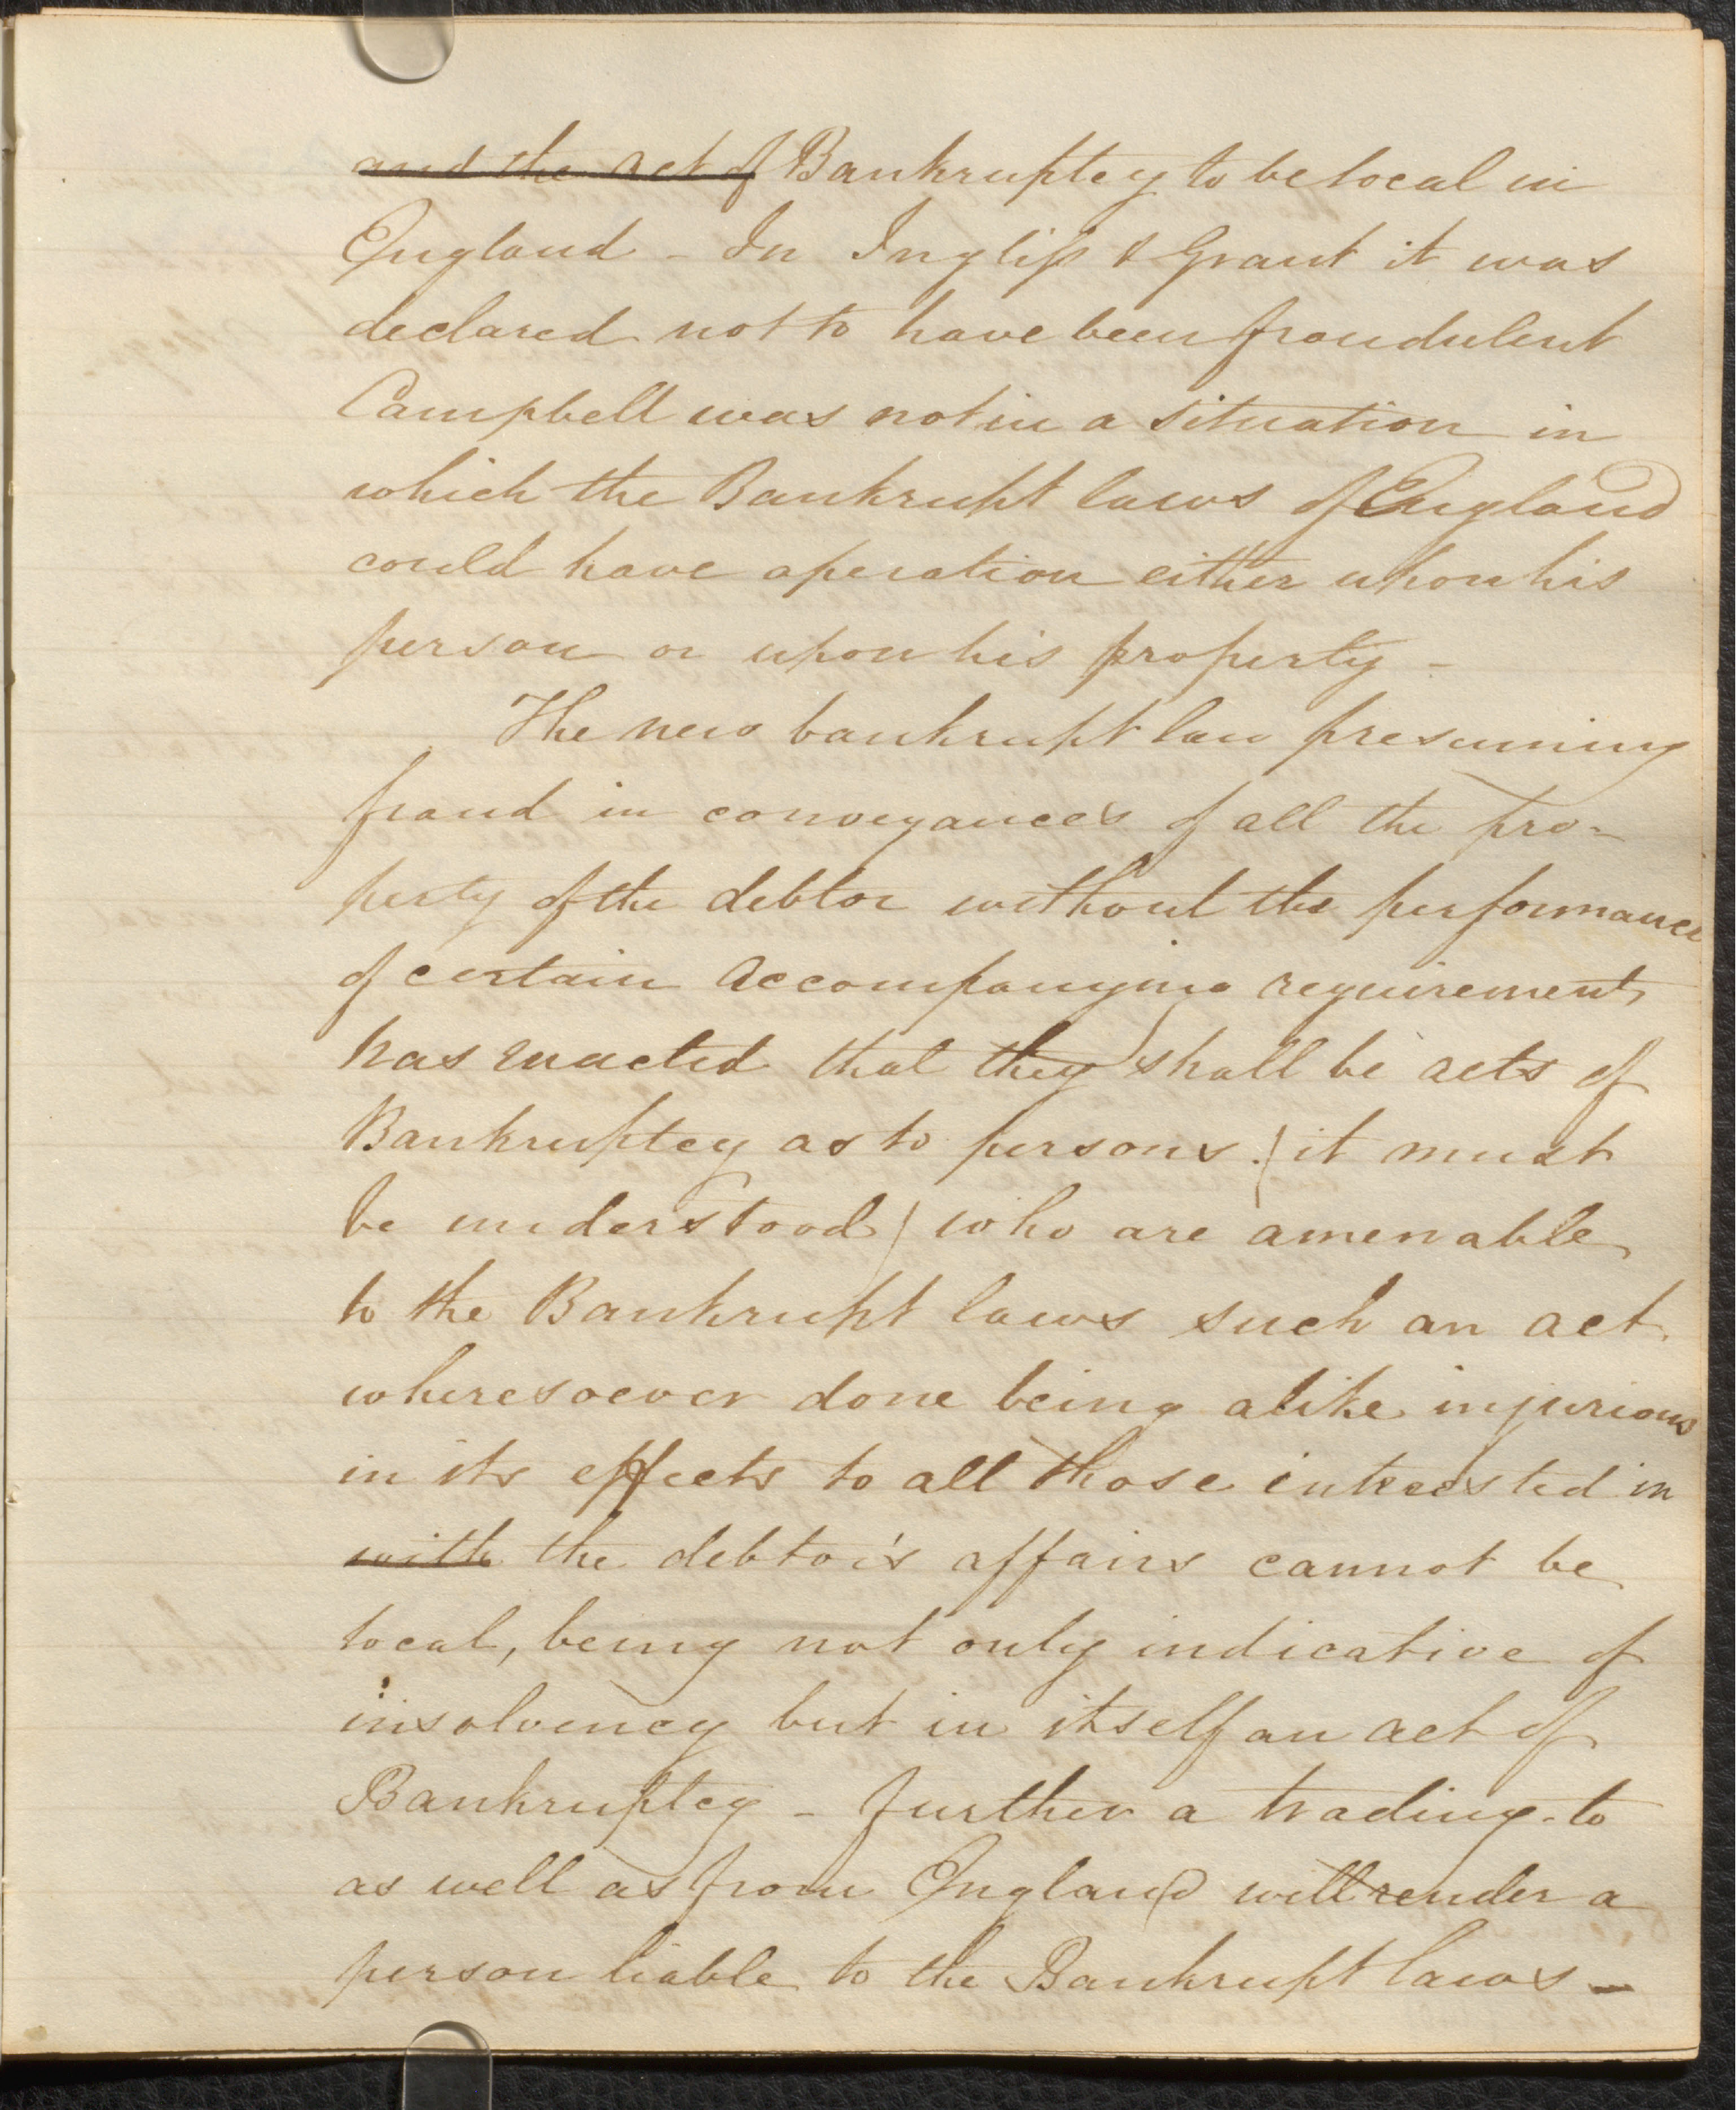 and the act of Bankruptcy to be local in
England - In Ingliss & Grant it was
declared not to have been fraudulent
Campbell was not in a situation in
which the Bankrupt laws of England
could have operation either upon his
person or upon his property -
The new bankrupt law presuming
fraud in conveyances of all the pro-
perty of the debtor without the performance
of certain accompanying requirements
has enacted that they shall be acts of
Bankruptcy as to persons (it must
be understood) who are amenable
to the Bankrupt laws such an act
wheresoever done being alike injurious
in its effects to all those interested in
with the debtor's affairs cannot be
local, being not only indicative of
insolvency but in itself an act of
Bankruptcy - further a trading to
as well as from England will render a
person liable to the Bankrupt laws -